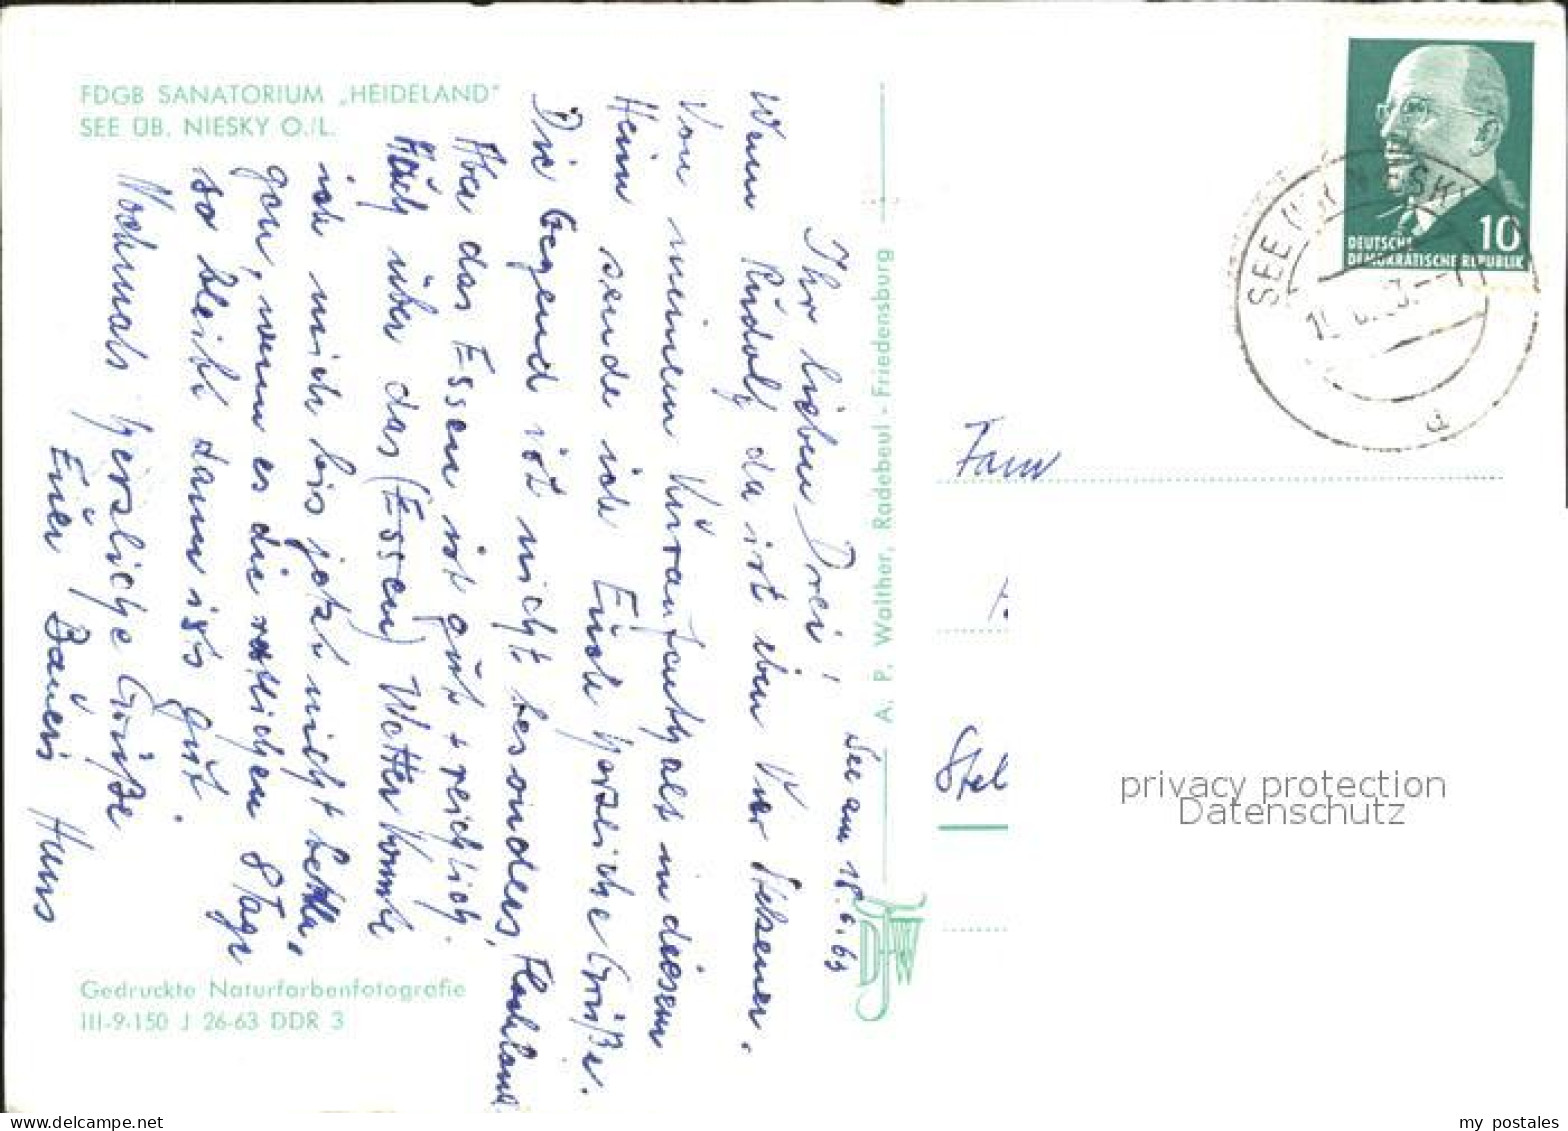 FDGB SANATORIUM „HEIDELAND"
SEE ÜB. NIESKY O./L.
See am 18.6.63
Ihr lieben Drei!
Wenn Rudolf da ist eben Vier
Von meinem Kuraufenthalt in diesem
Heim sende ich Euch herzliche Grüße.
Die Gegend ist nicht besonders, Flachland
Aber das Essen ist gut + reichlich.
Auch über das (Essen) Wetter konnte
ich mich bis jetzt nicht
gen, wenn es die restlichen 8 Tage
so bleibt dann ist's gut.
Nochmals herzliche Grüße
Euer Hans
Gedruckte Naturfarbenfotografie
III-9-150 J 26-63 DDR 3
A. P. Walther, Radebeul - Friedensburg
10
DEUTSCHE
DEMOKRATISCHE REPUBLIK
SEE
NIESKY
d
Fam
Stel
privacy protection
Datenschutz
my postales